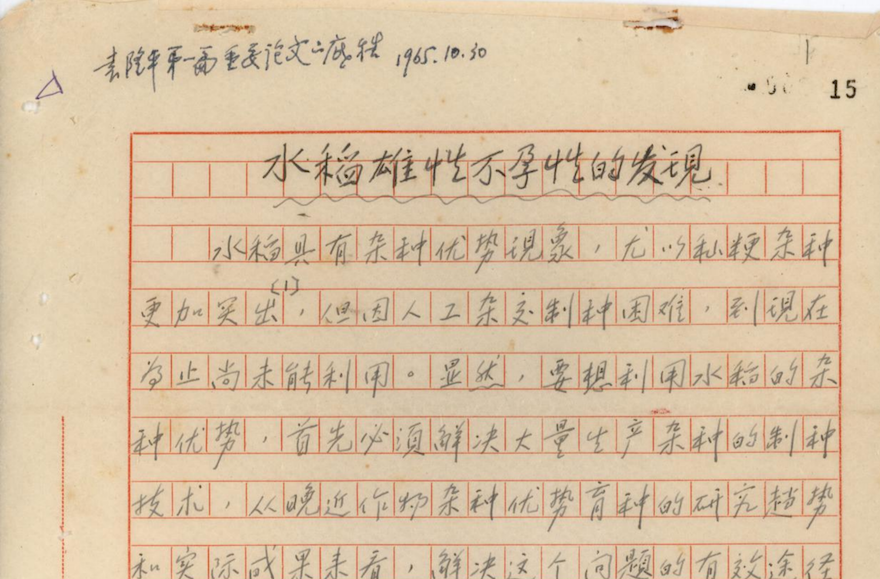 袁隆平第一篇重要论文之底稿 1965.10.30
15
水稻雄性不孕性的发现
水稻具有杂种优势现象，尤以籼粳杂种
更加突出(1)，但因人工杂交制种困难，到现在
为止尚未能利用。显然，要想利用水稻的杂
种优势，首先必须解决大量生产杂种的制种
技术，从晚近作物杂种优势育种的研究趋势
和实际成果来看，解决这个问题的有效途径